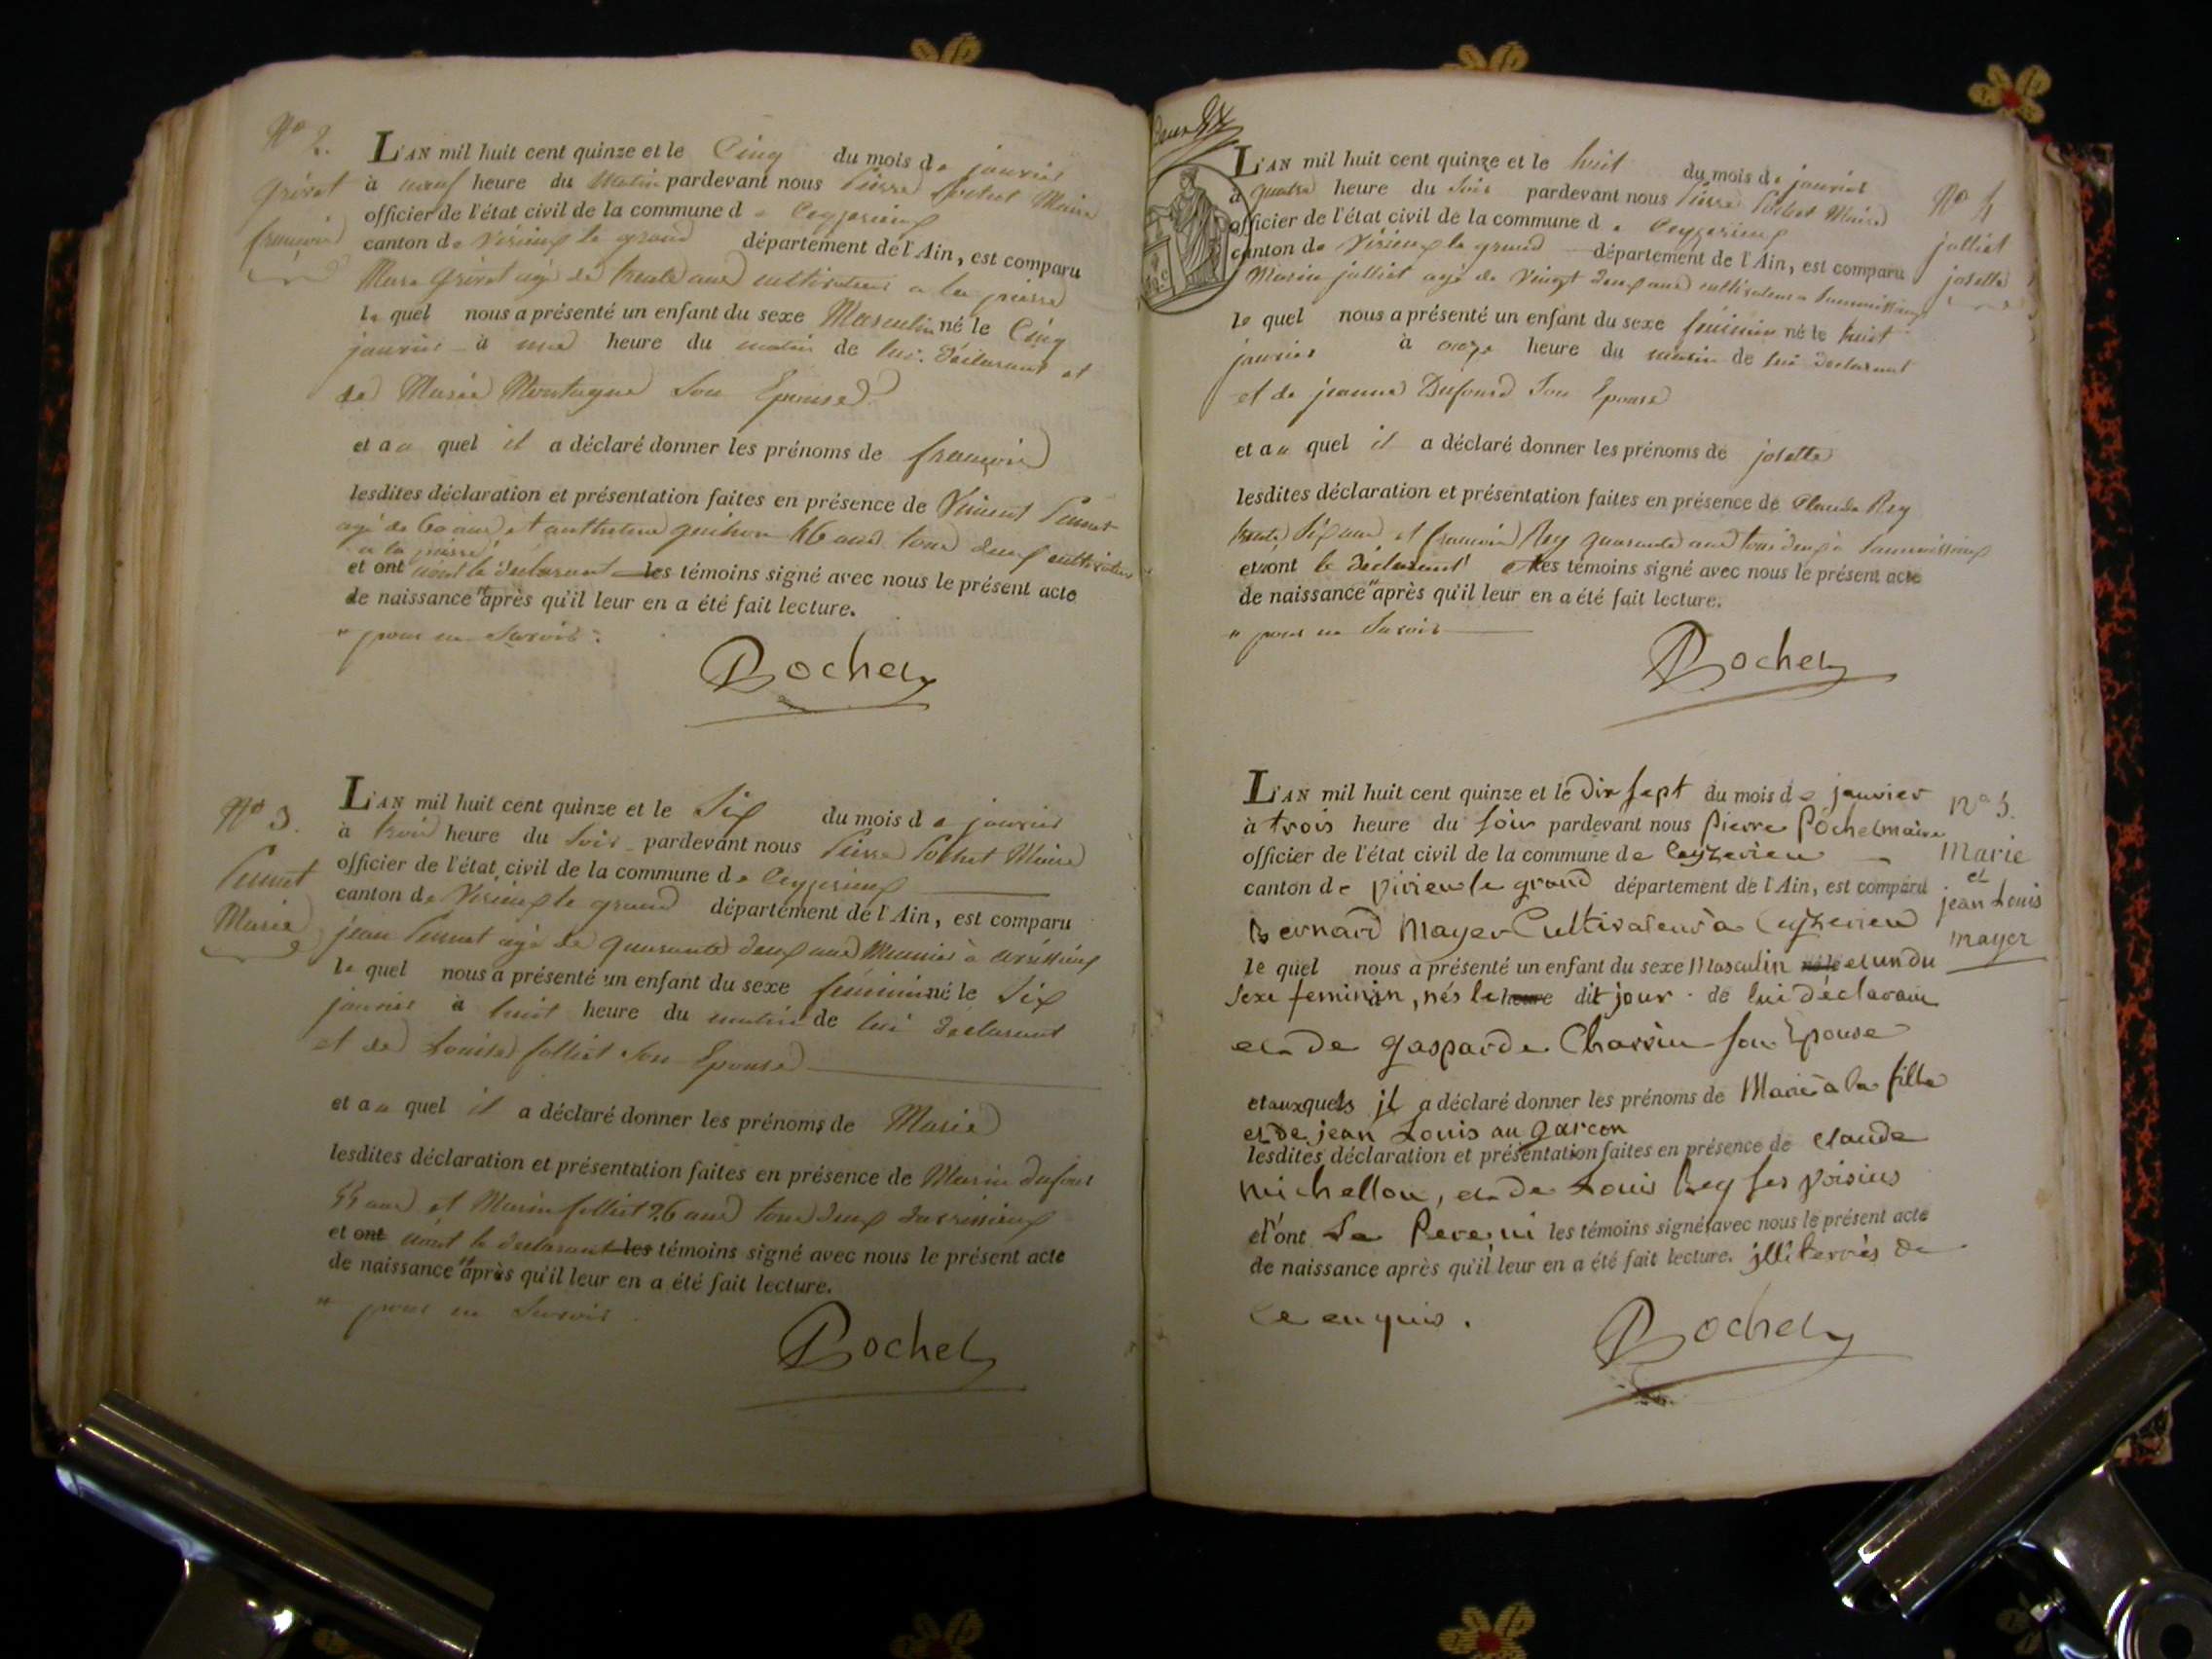 N° 2.
grivet
françois
L'AN mil huit cent quinze et le Cinq du mois de janvier
à neuf heure du matin pardevant nous Pierre Pochet Maire
officier de l'état civil de la commune de Ceyzerieux
canton de Virieux le grand département de l'Ain, est comparu
Marc grivet agé de trente ans cultivateur a la pierre
le quel nous a présenté un enfant du sexe Masculin né le Cinq
janvier à une heure du matin de lui déclarant et
de Marie Montagne Son Epouse
et au quel il a déclaré donner les prénoms de françois
lesdites déclaration et présentation faites en présence de Vincent
agé de 60 ans et anthelme guichon 46 ans tous deux cultivateurs
a la pierre
et ont n'ont le déclarant les témoins signé avec nous le présent acte
de naissance "après qu'il leur en a été fait lecture.
" pour ne Savoir.
Pochet
N° 3.
Marie
L'AN mil huit cent quinze et le Six du mois de janvier
à trois heure du Soir pardevant nous Pierre Pochet Maire
officier de l'état civil de la commune de Ceyzerieux
canton de Virieux le grand département de l'Ain, est comparu
jean agé de quarante deux ans Meunier à
le quel nous a présenté un enfant du sexe féminin né le Six
janvier à huit heure du matin de lui déclarant
et de Louise folliet Son Epouse
et au quel il a déclaré donner les prénoms de Marie
lesdites déclaration et présentation faites en présence de Marin dufour
55 ans et Marin folliet 26 ans tous deux
et ont n'ont le déclarant les témoins signé avec nous le présent acte
de naissance "après qu'il leur en a été fait lecture.
" pour ne Savoir.
Pochet
L'AN mil huit cent quinze et le huit du mois de janvier
à quatre heure du Soir pardevant nous Pierre Pochet Maire
officier de l'état civil de la commune de Ceyzerieux
canton de Virieux le grand département de l'Ain, est comparu
Marin julliet agé de Vingt deux ans cultivateur a
le quel nous a présenté un enfant du sexe féminin né le huit
janvier à onze heure du matin de lui déclarant
et de jeanne Dufour Son Epouse
et au quel il a déclaré donner les prénoms de josette
lesdites déclaration et présentation faites en présence de Claude Rey
trente Six ans et françois Rey quarante ans tous deux à
et n'ont le déclarant et les témoins signé avec nous le présent acte
de naissance "après qu'il leur en a été fait lecture.
" pour ne Savoir
Pochet
N° 4
julliet
josette
L'AN mil huit cent quinze et le Dix sept du mois de janvier
à trois heure du soir pardevant nous pierre Pochet maire
officier de l'état civil de la commune de Ceyzerieu
canton de virieu le grand département de l'Ain, est comparu
Bernard Mayer Cultivateur à Ceyzerieu
le quel nous a présenté un enfant du sexe Masculin né le et un du
Sexe feminin, nés le heure dit jour de lui déclarant
et de gasparde Charvin son Epouse
et auxquels il a déclaré donner les prénoms de Marie à la fille
et De jean Louis au garcon
lesdites déclaration et présentation faites en présence de claude
Michellou, et de Louis Rey ses voisins
et n'ont Le Pere ni les témoins signé avec nous le présent acte
de naissance après qu'il leur en a été fait lecture. illiterrés de
ce enquis.
Pochet
n° 5.
Marie
et
jean Louis
mayer